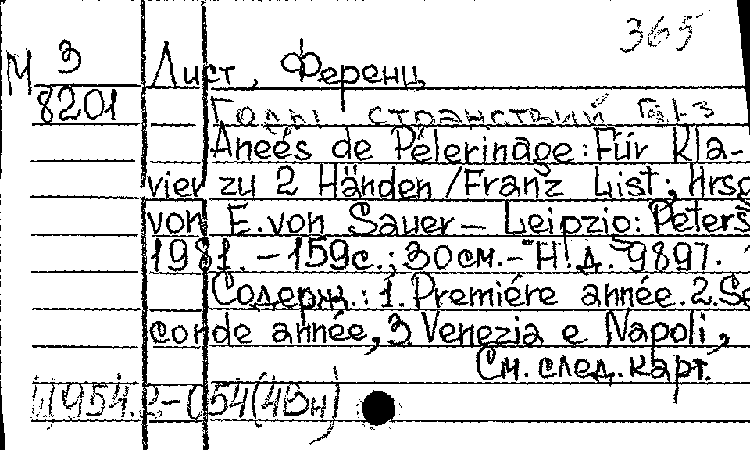 365
М 3 Лист, Ференц
8201 Годы странствий
Aneés de Pélerinage: Für Kla-
vier zu 2 Händen / Franz List; Hrsg
von E. von Sauer — Leipzig: Peters
1981. - 159с.; 30см. - Н. д. 9897.
Содерж.: 1. Premiére année. 2. Se
conde année, 3. Venezia e Napoli,
См. след. карт.
Щ954.2-054(4Вн)